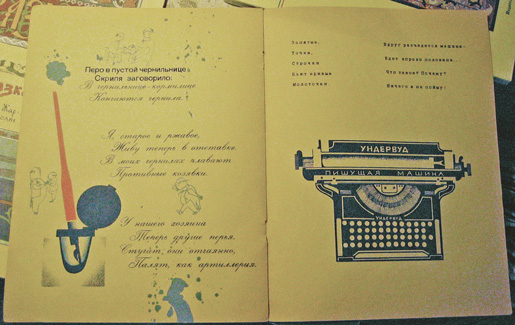 Перо в пустой чернильнице,
Скрипя заговорило:
В чернильнице-кормилице
Кончаются чернила!
Я, старое и ржавое,
Живу теперь в отставке.
В моих чернилах плавают
Противные козявки.
У нашего хозяина
Теперь другие перья.
Стучат, они отчаянно,
Палят, как артиллерия.
Запятые,
Точки,
Строчки
Бьют кривые
Молоточки.
Вдруг разъедется машина -
Едет вправо половина...
Что такое? Почему?
Ничего я не пойму!
УНДЕРВУД
ПИШУЩАЯ МАШИНА
УНДЕРВУД